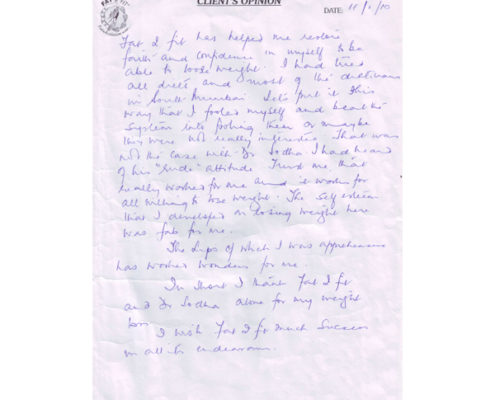 CLIENT'S OPINION
DATE: 11/1/10
Fat 2 fit has helped me restore
faith and confidence in myself to be
able to loose weight. I had tried
all diets and most of the dieticians
in South Mumbai. Let's put it this
way that I fooled myself and beat the
system into fooling them or maybe
they were not really interested. That was
not the case with Dr Sodha I had heard
of his "rude" attitude. Trust me that
really worked for me and it works for
all willing to lose weight. The self esteem
that I developed on losing weight here
was fab for me.
The drips of which I was apprehensive
has worked wonders for me.
In short I thank Fat 2 fit
and Dr Sodha alone for my weight
loss.
I wish Fat 2 fit much success
in all its endeavours.